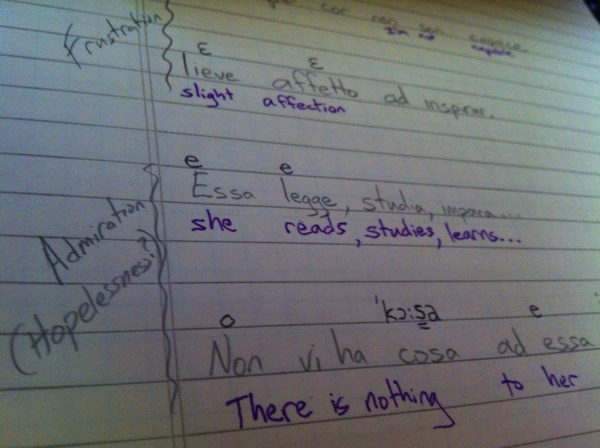 cor non son capace
I'm not capable
Frustration
ɛ ɛ
lieve affetto ad inspirar.
slight affection
e e
Essa legge, studia, impara...
she reads, studies, learns...
Admiration
(Hopelessness?)
o 'kɔ:sa e
Non vi ha cosa ad essa
There is nothing to her